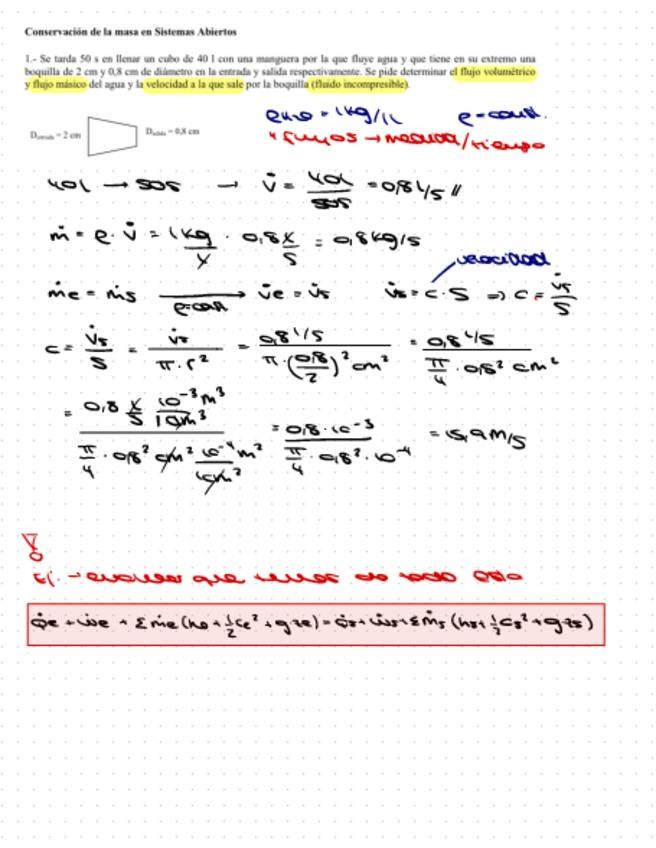 Conservación de la masa en Sistemas Abiertos
1.- Se tarda 50 s en llenar un cubo de 40 l con una manguera por la que fluye agua y que tiene en su extremo una
boquilla de 2 cm y 0,8 cm de diámetro en la entrada y salida respectivamente. Se pide determinar el flujo volumétrico
y flujo másico del agua y la velocidad a la que sale por la boquilla (fluido incompresible).
ρH2O = 1kg/1L ρ=const.
* flujos → medida/tiempo
D entrada = 2 cm D salida = 0,8 cm
40L → 50s → V̇ = 40L/50s = 0,8 L/s //
ṁ = ρ · V̇ = 1kg/L · 0,8 L/s = 0,8 kg/s
velocidad
ṁe = ṁs → ρ=const V̇e = V̇s V̇s = C·S ⇒ C = V̇s/S
C = V̇s/S = V̇s/(π·r²) = 0,8 L/s / (π·(0,8/2)² cm²) = 0,8 L/s / (π/4 · 0,8² cm²)
= 0,8 L/s 10⁻³m³/1dm³ / (π/4 · 0,8² cm² 10⁻⁴m²/1cm²) = 0,8·10⁻³ / (π/4 · 0,8² · 10⁻⁴) = 15,9 m/s
Ej. → evaluar que de todo esto
Q̇e + Ẇe + Σṁe (he + ½Ce² + gze) = Q̇s + Ẇs + Σṁs (hs + ½Cs² + gzs)